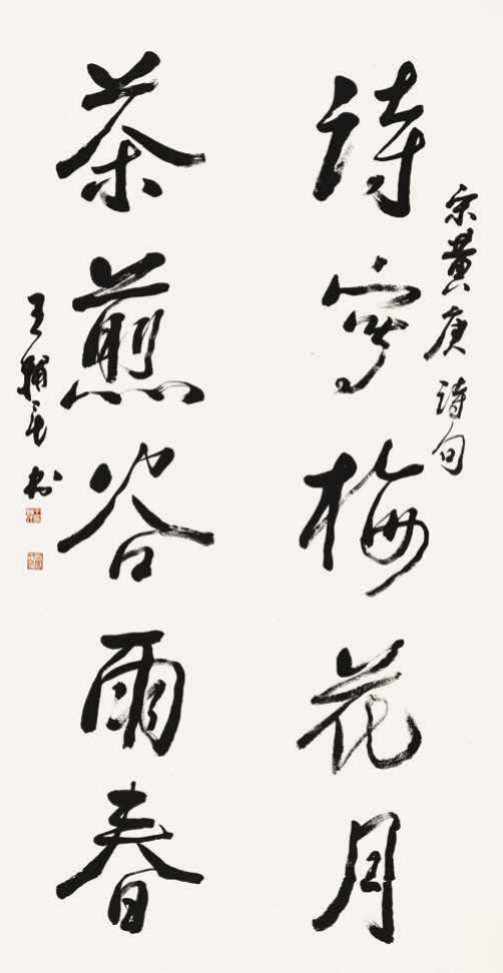 宋黄庚詩句
詩寫梅花月
茶煎谷雨春
王輔民書